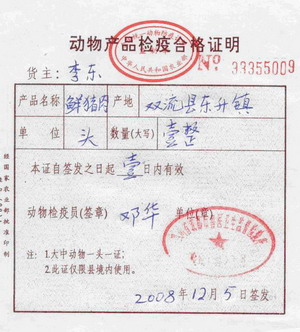 动物产品检疫合格证明
中华人民共和国农业部
No 33355009
货主：李东
产品名称 鲜猪肉 产地 双流县东升镇
单位 头 数量(大写) 壹整
本证自签发之日起 壹 日内有效
动物检疫员(签章) 邓华 单位(章)
注：1.大中动物一头一证；
2.此证仅限县境内使用。
2008年12月5日签发